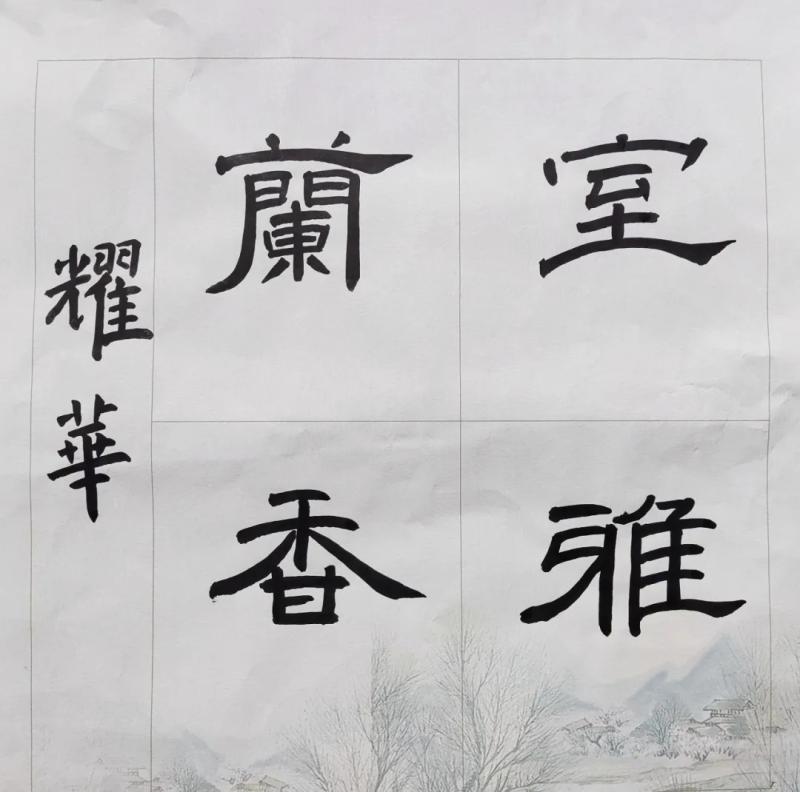 室雅
蘭香
耀華